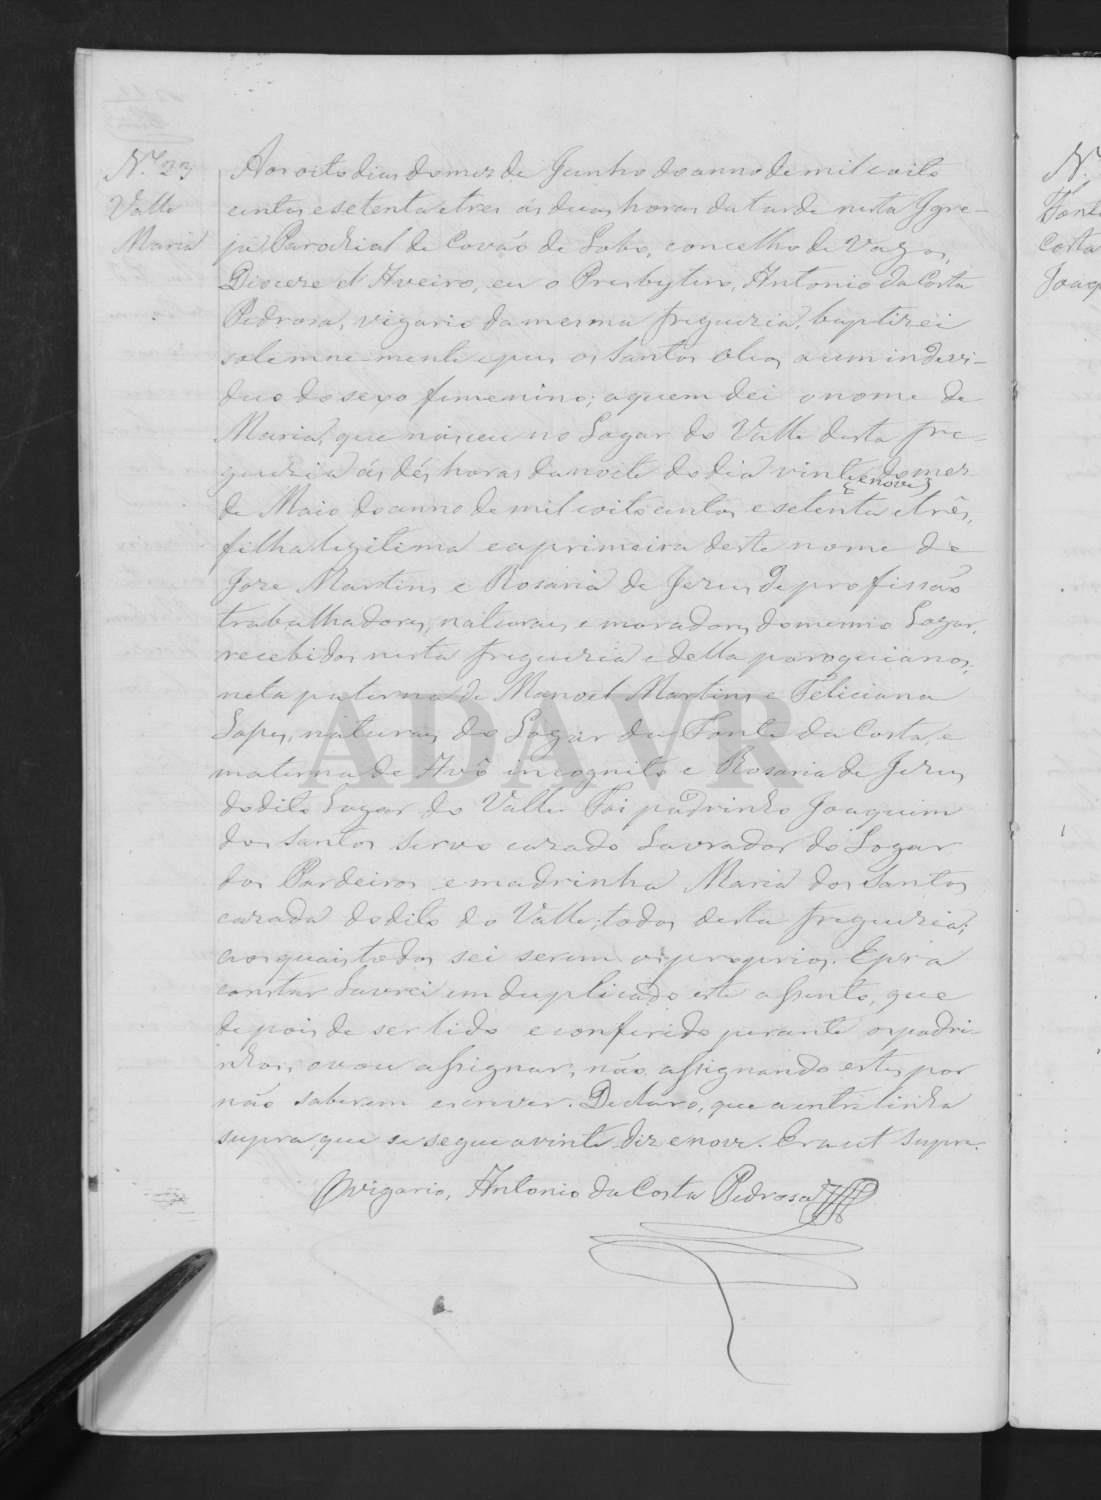 N.º 23
Valle
Maria
Aos oito dias do mez de Junho do anno de mil oito
centos e setenta e tres ás duas horas da tarde nesta Igre-
ja Parochial de Covão de Lobo, concelho de Vagos,
Diocese d'Aveiro, eu o Presbytero, Antonio da Costa
Pedrosa, vigario da mesma freguezia, baptizei
solemnemente e puz os Santos Oleos a um indevi-
duo do sexo femenino; a quem dei o nome de
Maria, que nasceu no Logar do Valle desta fre-
guezia ás dés horas da noite do dia vinte do mez
e nove
de Maio do anno de mil oito centos e setenta e três,
filha legitima e a primeira deste nome de
Joze Martins e Rosaria de Jezus de profissão
trabalhadores, naturaes e moradores do mesmo Logar,
recebidos nesta freguezia e della paroquianos,
neta paterna de Manoel Martins e Feliciana
Lopes, naturaes do Logar da Fonte da Costa, e
materna de Avô incognito e Rosaria de Jezus
do dito Lugar do Valle. Foi padrinho Joaquim
dos Santos Servo cazado Lavrador do Logar
dos Pardeiros e madrinha Maria dos Santos
cazada do dito do Valle; todos desta freguezia;
aos quais todos sei serem os proprios. E para
constar lavrei em duplicado este assento, que
depois de ser lido e conferido perante os padri-
nhos, o vou assignar, não assignando estes por
não saberem escrever. Declaro, que a entrelinha
supra que se segue a vinte diz e nove. Era ut supra.
O vigario, Antonio da Costa Pedrosa
ADAVR
N.º
Font
Costa
Joaq